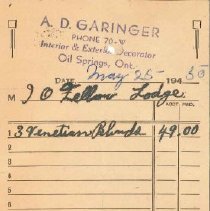 A. D. GARINGER
PHONE 70-W
Interior & Exterior Decorator
Oil Springs, Ont.
DATE May 25 194 50
M I O Fellow Lodge
1 3 Venetian Blinds 49.00
2
3
4
5
6